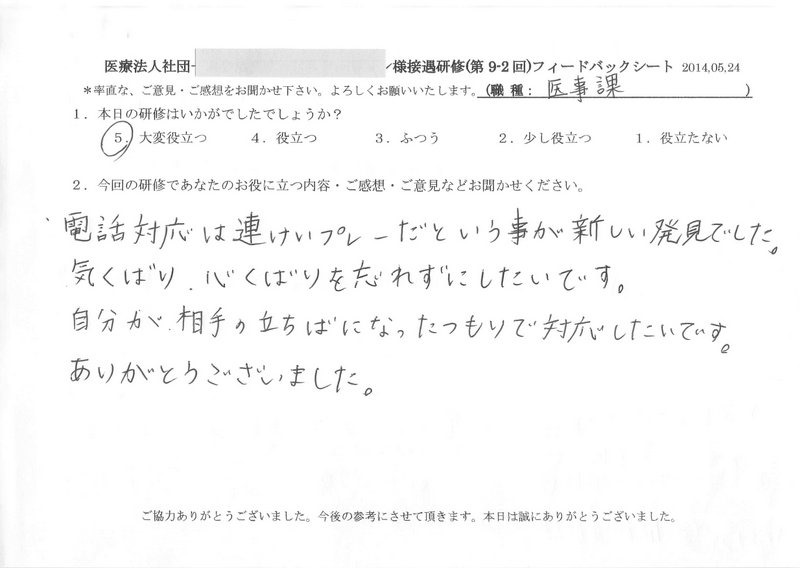 医療法人社団 様接遇研修(第9-2回)フィードバックシート 2014,05,24
*率直な、ご意見・ご感想をお聞かせ下さい。よろしくお願いいたします。(職種: 医事課 )
1.本日の研修はいかがでしたでしょうか?
5.大変役立つ 4.役立つ 3.ふつう 2.少し役立つ 1.役立たない
2.今回の研修であなたのお役に立つ内容・ご感想・ご意見などお聞かせください。
電話対応は連けいプレーだという事が新しい発見でした。
気くばり、心くばりを忘れずにしたいです。
自分が、相手の立ちばになったつもりで対応したいです。
ありがとうございました。
ご協力ありがとうございました。今後の参考にさせて頂きます。本日は誠にありがとうございました。